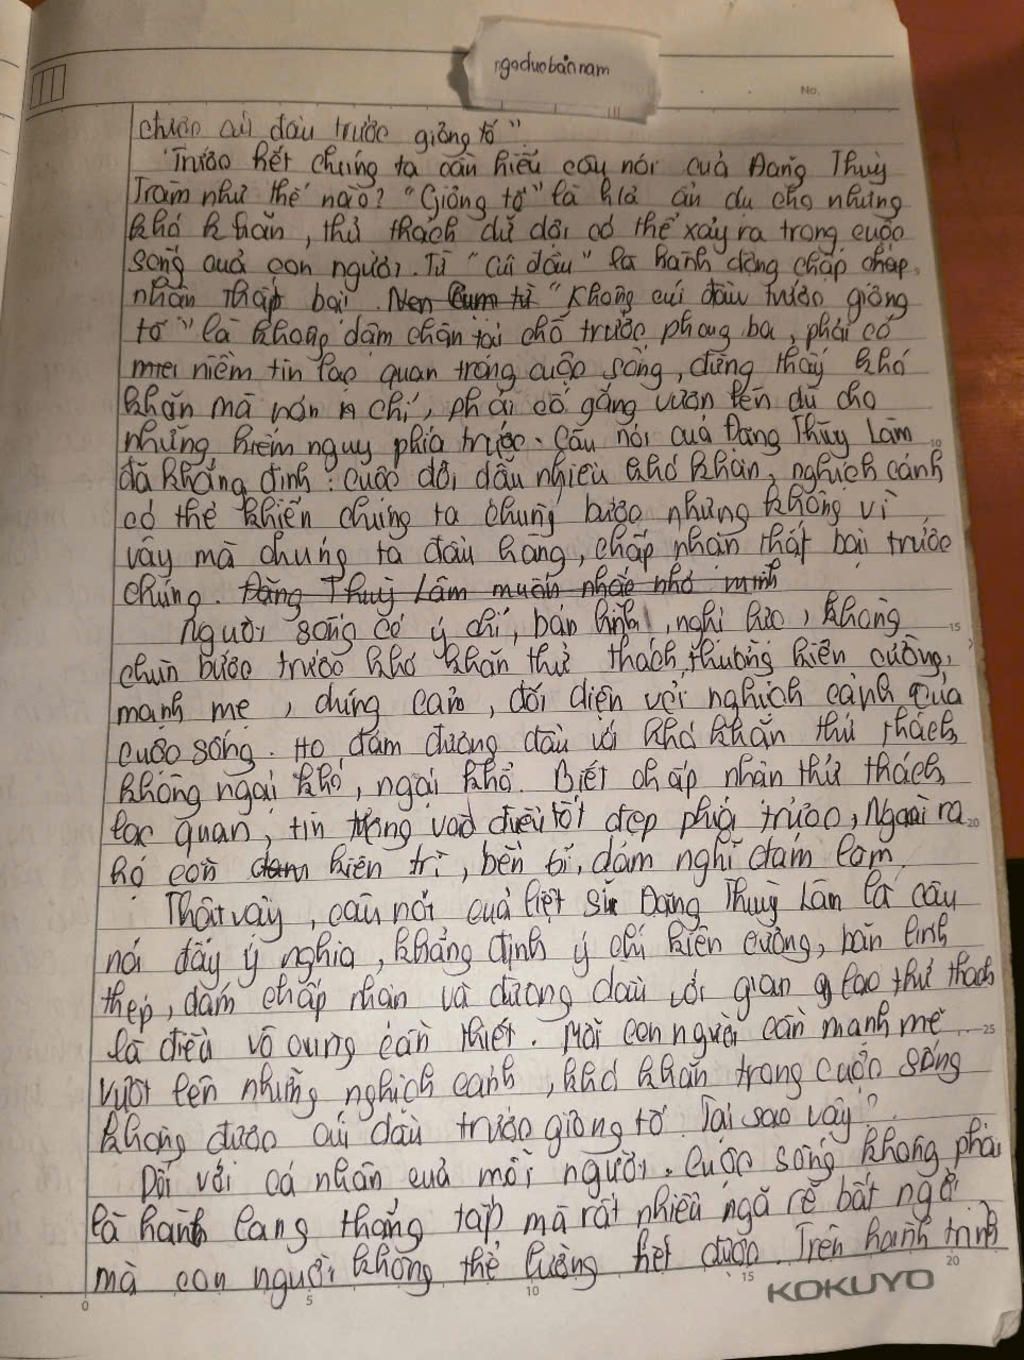 ngoduobannam
No.
chước cúi đầu trước giông tố"
Trước hết chúng ta cần hiểu câu nói cuả Đặng Thuỳ
Trâm như thế nào? "Giông tố" là h/a ẩn dụ cho những
khó khăn, thử thách dữ dội có thể xảy ra trong cuộc
sống cuả con người. Từ "Cúi đầu" là hành động chấp chấp
nhận thấp bại. Nen Cum từ "Không cúi đầu trước giông
tố" là không dậm chân tại chỗ trước phong ba, phải có
niềm tin lạc quan trong cuộc sống, đừng thấy khó
khăn mà nản chí, phải cố gắng vươn lên dù cho
những hiểm nguy phía trước. Câu nói cuả Đặng Thùy Lâm
đã khẳng định: cuộc đời dẫu nhiều khó khăn, nghịch cảnh
có thể khiến chúng ta chung bước nhưng không vì
vậy mà chúng ta đầu hàng, chấp nhận thất bại trước
chúng. Đặng Thuỳ Lâm muốn nhắc nhở mình
Người sống có ý chí, bản lĩnh, nghị lực, không
chùn bước trước khó khăn thử thách, thường kiên cường,
mạnh mẽ, dũng cảm, đối diện với nghịch cảnh của
cuộc sống. Họ dám đương đầu với khó khăn thử thách,
không ngại khó, ngại khổ. Biết chấp nhận thử thách,
lạc quan, tin tưởng vào điều tốt đẹp phía trước, Ngoài ra
họ còn dam kiên trì, bền bỉ, dám nghĩ dám làm.
Thật vậy, câu nói cuả liệt sĩ Đặng Thuỳ Lâm là câu
nói đầy ý nghĩa, khẳng định ý chí kiên cường, bản lĩnh
thép, dám chấp nhận và đương đầu với gian lao thử thách
là điều vô cùng cần thiết. Mỗi con người cần mạnh mẽ
vượt lên những nghịch cảnh, khó khăn trong cuộc sống
không được cúi đầu trước giông tố. Tại sao vậy?
Đối với cá nhân cuả mỗi người. Cuộc sống không phải
là hành lang thẳng tắp mà rất nhiều ngã rẽ bất ngờ
mà con người không thể lường hết được. Trên hành trình
KOKUYO